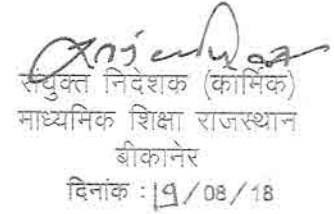 संयुक्त निदेशक (कार्मिक)
माध्यमिक शिक्षा राजस्थान
बीकानेर
दिनांक : 19/08/18